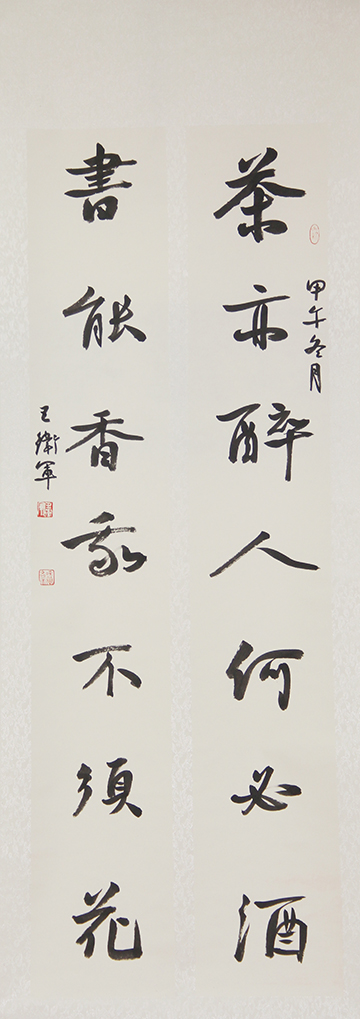 甲午冬月
茶亦醉人何必酒
書能香我不須花
王衛軍